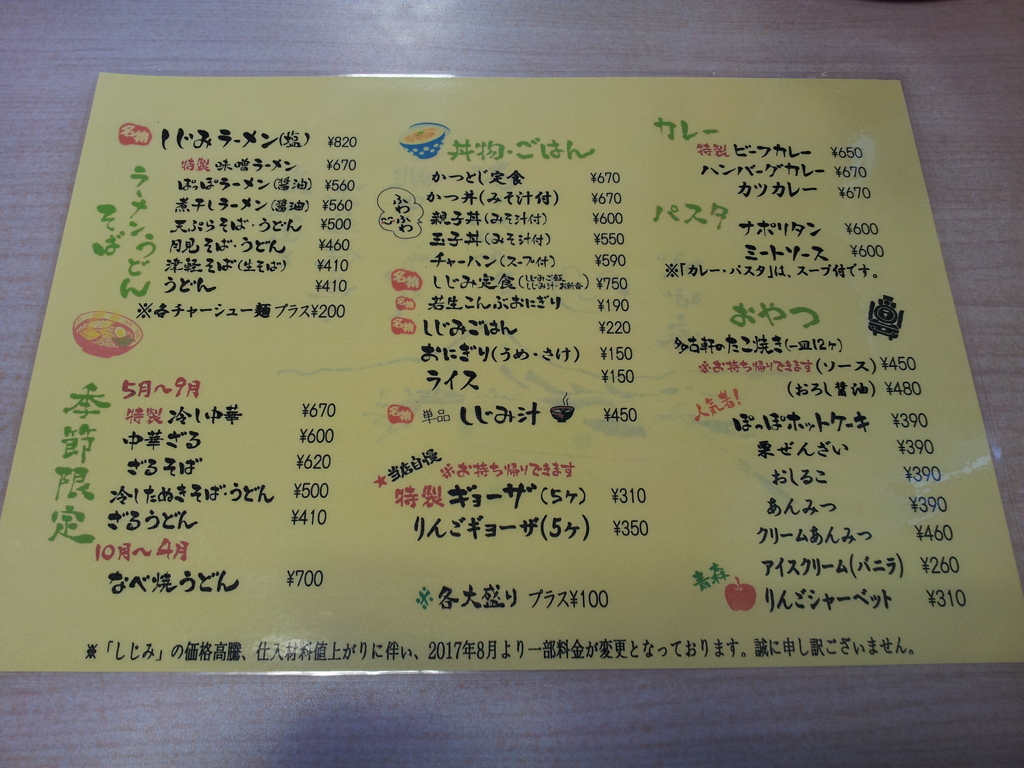 名物 しじみラーメン(塩) ¥820
ラーメン うどん そば
特製 味噌ラーメン ¥670
ぽっぽラーメン(醤油) ¥560
煮干しラーメン(醤油) ¥560
天ぷらそば・うどん ¥500
月見そば・うどん ¥460
津軽そば(生そば) ¥410
うどん ¥410
※各チャーシュー麺 プラス¥200
季節限定
5月〜9月
特製 冷し中華 ¥670
中華ざる ¥600
ざるそば ¥620
冷したぬきそば・うどん ¥500
ざるうどん ¥410
10月〜4月
なべ焼うどん ¥700
丼物・ごはん
かつとじ定食 ¥670
ふわふわ
かつ丼(みそ汁付) ¥670
親子丼(みそ汁付) ¥600
玉子丼(みそ汁付) ¥550
チャーハン(スープ付) ¥590
名物 しじみ定食(しじみご飯 しじみ汁・お新香) ¥750
名物 若生こんぶおにぎり ¥190
名物 しじみごはん ¥220
おにぎり(うめ・さけ) ¥150
ライス ¥150
名物 単品 しじみ汁 ¥450
★当店自慢 ※お持ち帰りできます
特製ギョーザ(5ヶ) ¥310
りんごギョーザ(5ヶ) ¥350
※各大盛り プラス¥100
カレー
特製 ビーフカレー ¥650
ハンバーグカレー ¥670
カツカレー ¥670
パスタ
ナポリタン ¥600
ミートソース ¥600
※「カレー・パスタ」は、スープ付です。
おやつ
多古軒のたこ焼き(一皿12ヶ)
※お持ち帰りできます(ソース) ¥450
(おろし醤油) ¥480
人気者!
ぽっぽホットケーキ ¥390
栗ぜんざい ¥390
おしるこ ¥390
あんみつ ¥390
クリームあんみつ ¥460
アイスクリーム(バニラ) ¥260
青森 りんごシャーベット ¥310
※「しじみ」の価格高騰、仕入材料値上がりに伴い、2017年8月より一部料金が変更となっております。誠に申し訳ございません。